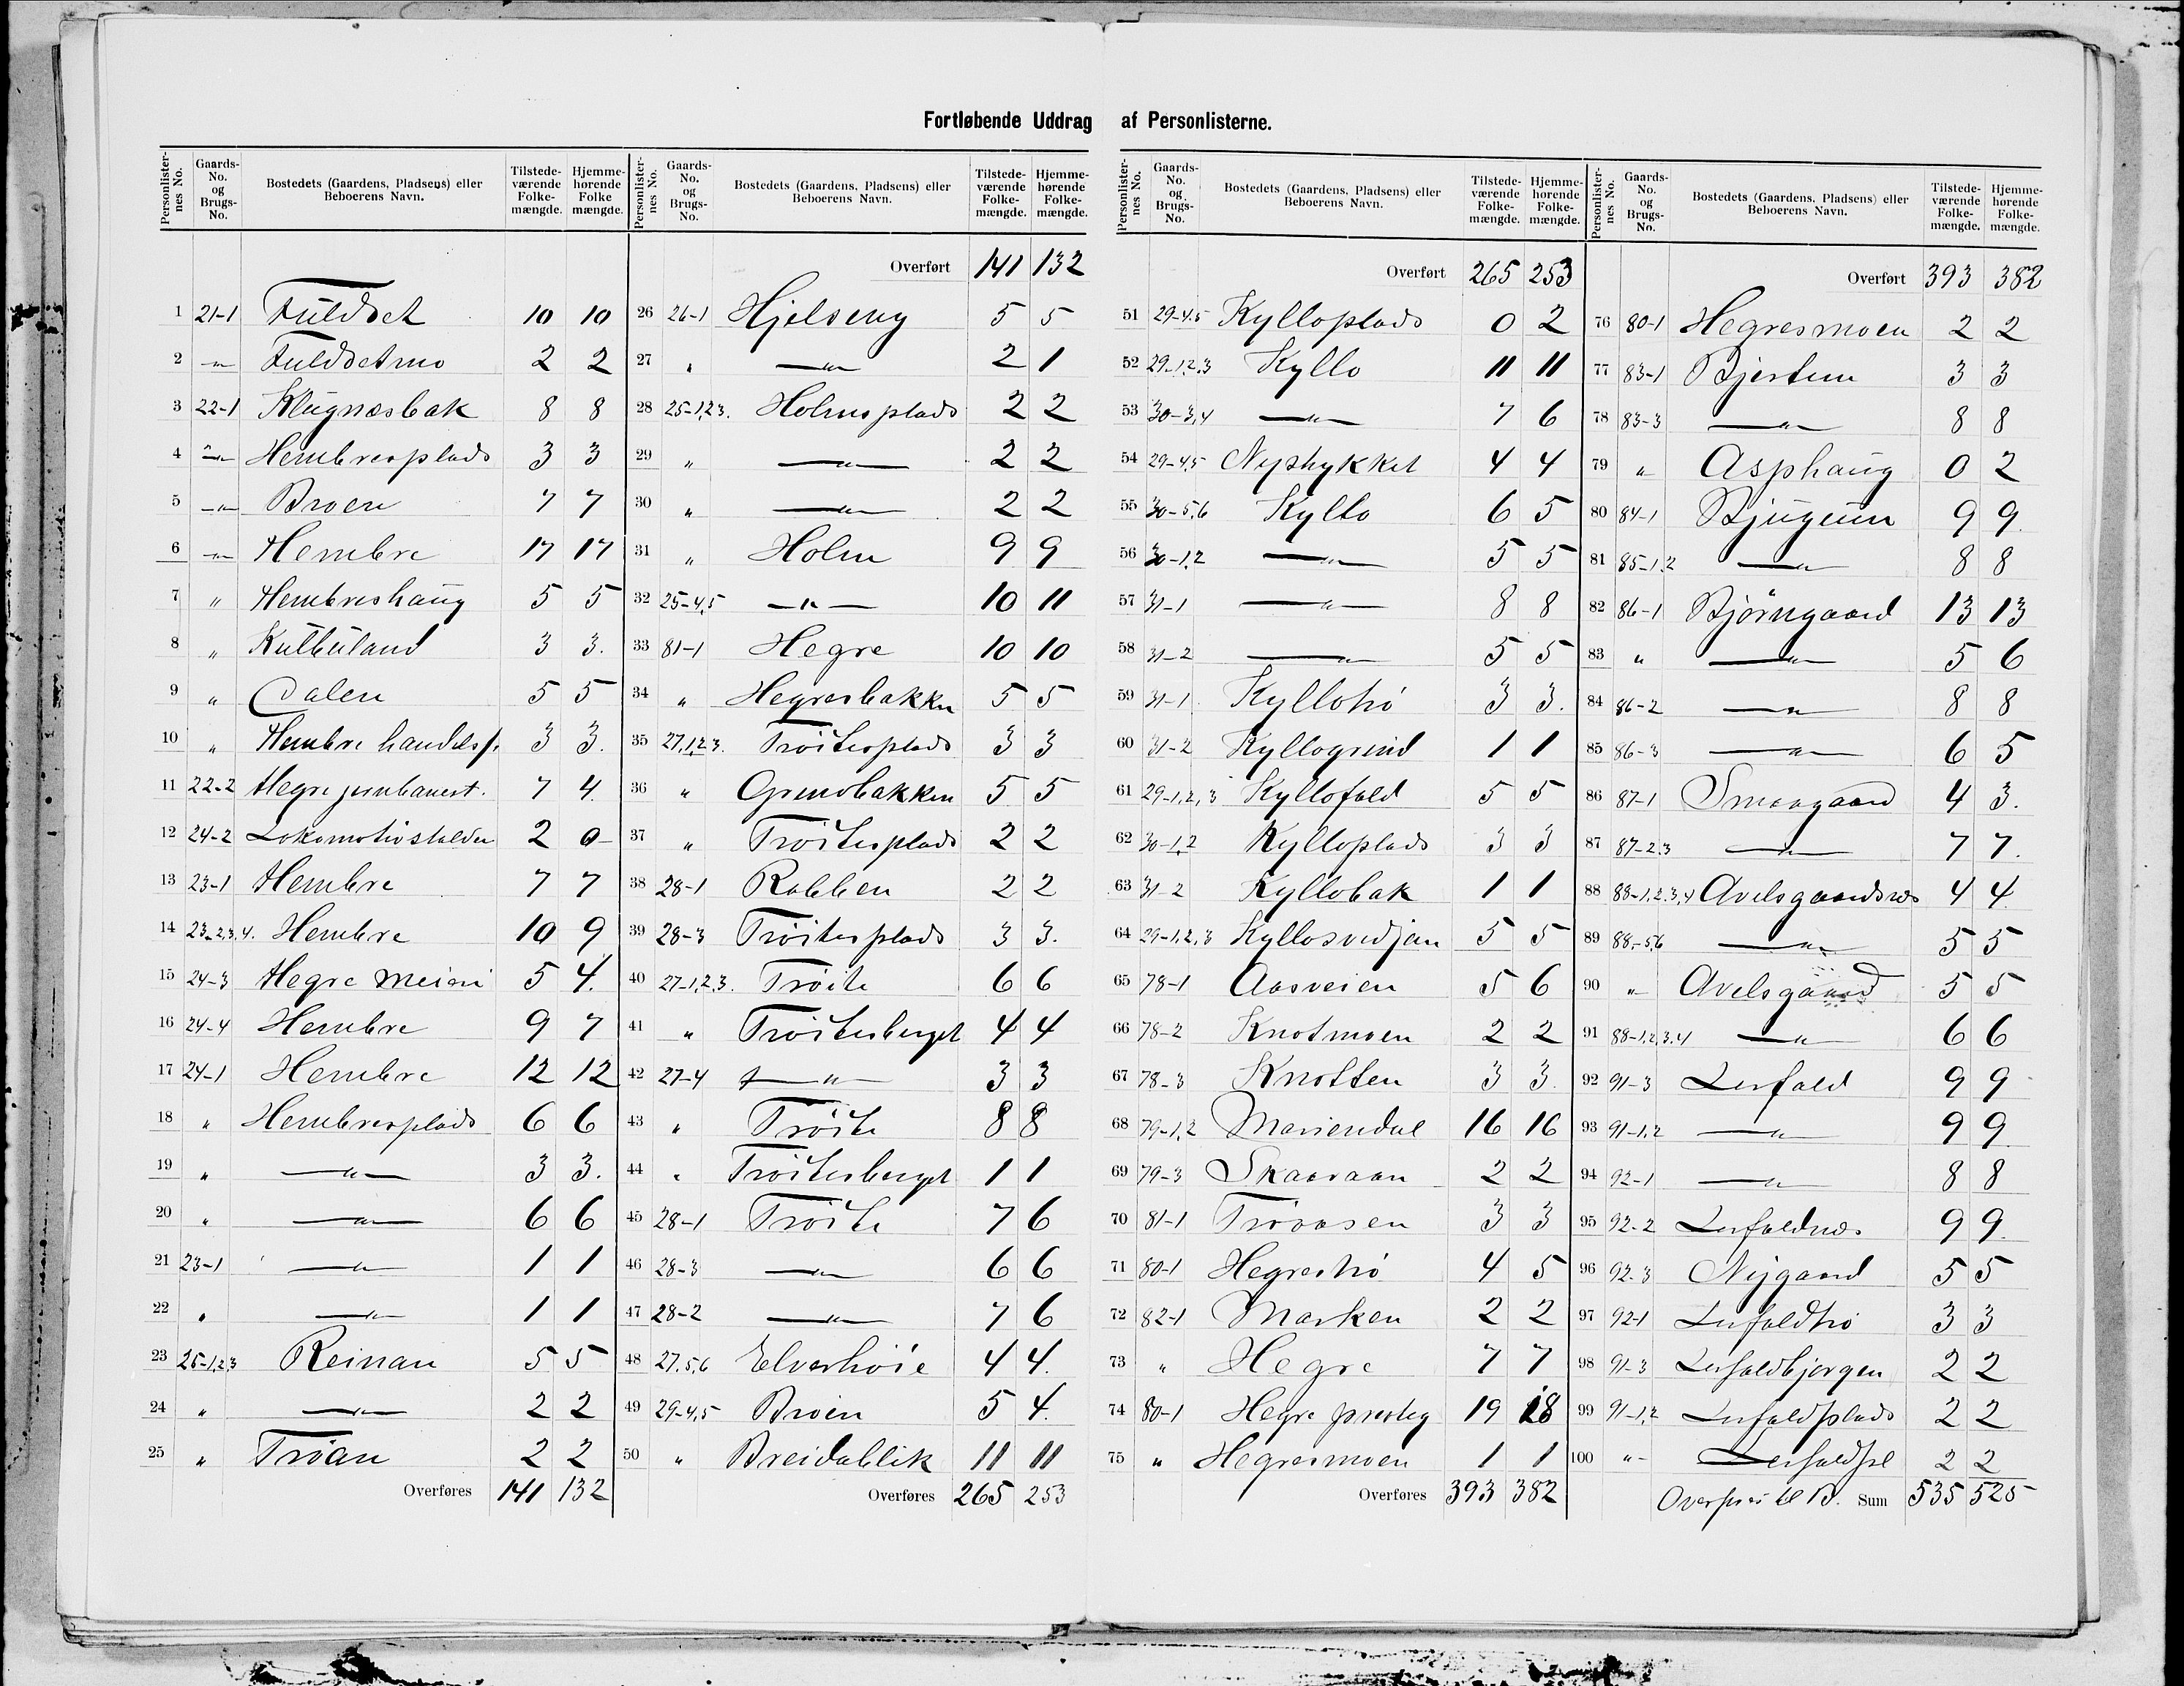 Fortløbende Uddrag af Personlisterne.
Personlisternes No. Gaards-No. og Brugs-No. Bostedets (Gaardens, Pladsens) eller Beboerens Navn. Tilstedeværende Folkemængde. Hjemmehørende Folkemængde.
1 21-1 Fuldset 10 10
2 -„- Fuldsetmo 2 2
3 22-1 Klugnæsbak 8 8
4 -„- Hembresplads 3 3
5 -„- Broen 7 7
6 -„- Hembre 17 17
7 „ Hembreshaug 5 5
8 „ Kulbuland 3 3.
9 „ Dalen 5 5
10 „ Hembre handelsf. 3 3.
11 22-2 Hegre jernbanest. 7 4
12 24-2 Lokomotivstalden 2 0
13 23-1 Hembre 7 7
14 23-2,3,4. Hembre 10 9
15 24-3 Hegre meieri 5 4.
16 24-4 Hembre 9 7
17 24-1 Hembre 12 12
18 „ Hembresplads 6 6
19 „ —„— 3 3.
20 „ —„— 6 6
21 23-1 —„— 1 1
22 „ —„— 1 1
23 25-1,2,3 Reinan 5 5
24 „ —„— 2 2
25 „ Trøan 2 2
Overføres 141 132
Personlisternes No. Gaards-No. og Brugs-No. Bostedets (Gaardens, Pladsens) eller Beboerens Navn. Tilstedeværende Folkemængde. Hjemmehørende Folkemængde.
Overført 141 132
26 26-1 Hjelseng 5 5
27 „ —„— 2 1
28 25-1,2,3. Holmsplads 2 2
29 „ —„— 2 2
30 „ —„— 2 2
31 „ Holm 9 9
32 25-4,5 —„— 10 11
33 81-1 Hegre 10 10
34 „ Hegresbakken 5 5
35 27,1,2,3. Trøitesplads 3 3
36 „ Grindbakken 5 5
37 „ Trøitesplads 2 2
38 28-1 Robben 2 2
39 28-3 Trøitesplads 3 3.
40 27-1,2,3. Trøite 6 6
41 „ Trøitesberget 4 4
42 27-4 —„— 3 3
43 „ Trøite 8 8
44 „ Trøitesberget 1 1
45 28-1 Trøite 7 6
46 28-3 —„— 6 6
47 28-2 —„— 7 6
48 27.5,6 Elvershøie 4 4.
49 29-4,5 Broen 5 4.
50 „ Breidablik 11 11
Overføres 265 253
Personlisternes No. Gaards-No. og Brugs-No. Bostedets (Gaardens, Pladsens) eller Beboerens Navn. Tilstedeværende Folkemængde. Hjemmehørende Folkemængde.
Overført 265 253
51 29-4.5 Kylloplads 0 2
52 29-1,2,3 Kyllo 11 11
53 30-3,4 —„— 7 6
54 29-4,5 Nystykket 4 4
55 30-5,6 Kyllo 6 5
56 30-1,2 —„— 5 5
57 31-1 —„— 8 8
58 31-2 —„— 5 5
59 31-1 Kyllotrø 3 3.
60 31-2 Kyllogrind 1 1
61 29-1,2,3 Kyllofald 5 5
62 30-1,2 Kylloplads 3 3
63 31-2 Kyllobak 1 1
64 29-1,2,3 Kyllosvedjan 5 5
65 78-1 Aasveien 5 6
66 78-2 Knotmoen 2 2
67 78-3 Knotten 3 3.
68 79-1,2 Mariendal 16 16
69 79-3 Skaaraan 2 2
70 81-1 Trøaasen 3 3
71 80-1 Hegrestrø 4 5
72 82-1 Marken 2 2
73 „ Hegre 7 7
74 80-1 Hegre presteg 19 18
75 „ Hegresmoen 1 1
Overføres 393 382
Personlisternes No. Gaards-No. og Brugs-No. Bostedets (Gaardens, Pladsens) eller Beboerens Navn. Tilstedeværende Folkemængde. Hjemmehørende Folkemængde.
Overført 393 382
76 80-1 Hegresmoen 2 2
77 83-1 Bjertem 3 3
78 83-3 —„— 8 8
79 „ Asphaug 0 2
80 84-1 Bjugum 9 9.
81 85-1,2 —„— 8 8
82 86-1 Bjørngaard 13 13
83 „ —„— 5 6
84 86-2 —„— 8 8
85 86-3 —„— 6 5
86 87-1 Smaagaard 4 3.
87 87-2.3 —„— 7 7.
88 88-1,2.3,4 Avelsgaardsnes 4 4
89 88,-5,6 —„— 5 5
90 „ Avelsgaard 5 5
91 88-1,2,3.4 —„— 6 6
92 91-3 Lerfald 9 9
93 91-1,2 —„— 9 9
94 92-1 —„— 8 8
95 92-2 Lerfaldnes 9 9.
96 92-3 Nygaard 5 5
97 92-1 Lerfaldtrø 3 3
98 91-3 Lerfaldbjergen 2 2
99 91-1,2 Lerfaldplads 2 2
100 „- Lerfaldpl 2 2
Overføres til B. Sum 535 525